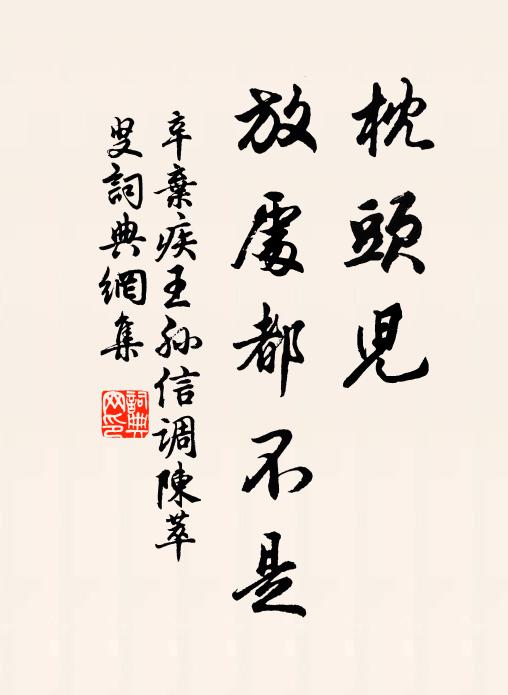 枕頭兒
放處都不是
辛棄疾王孫信調陳萃
叟詞典網集
詞典网印